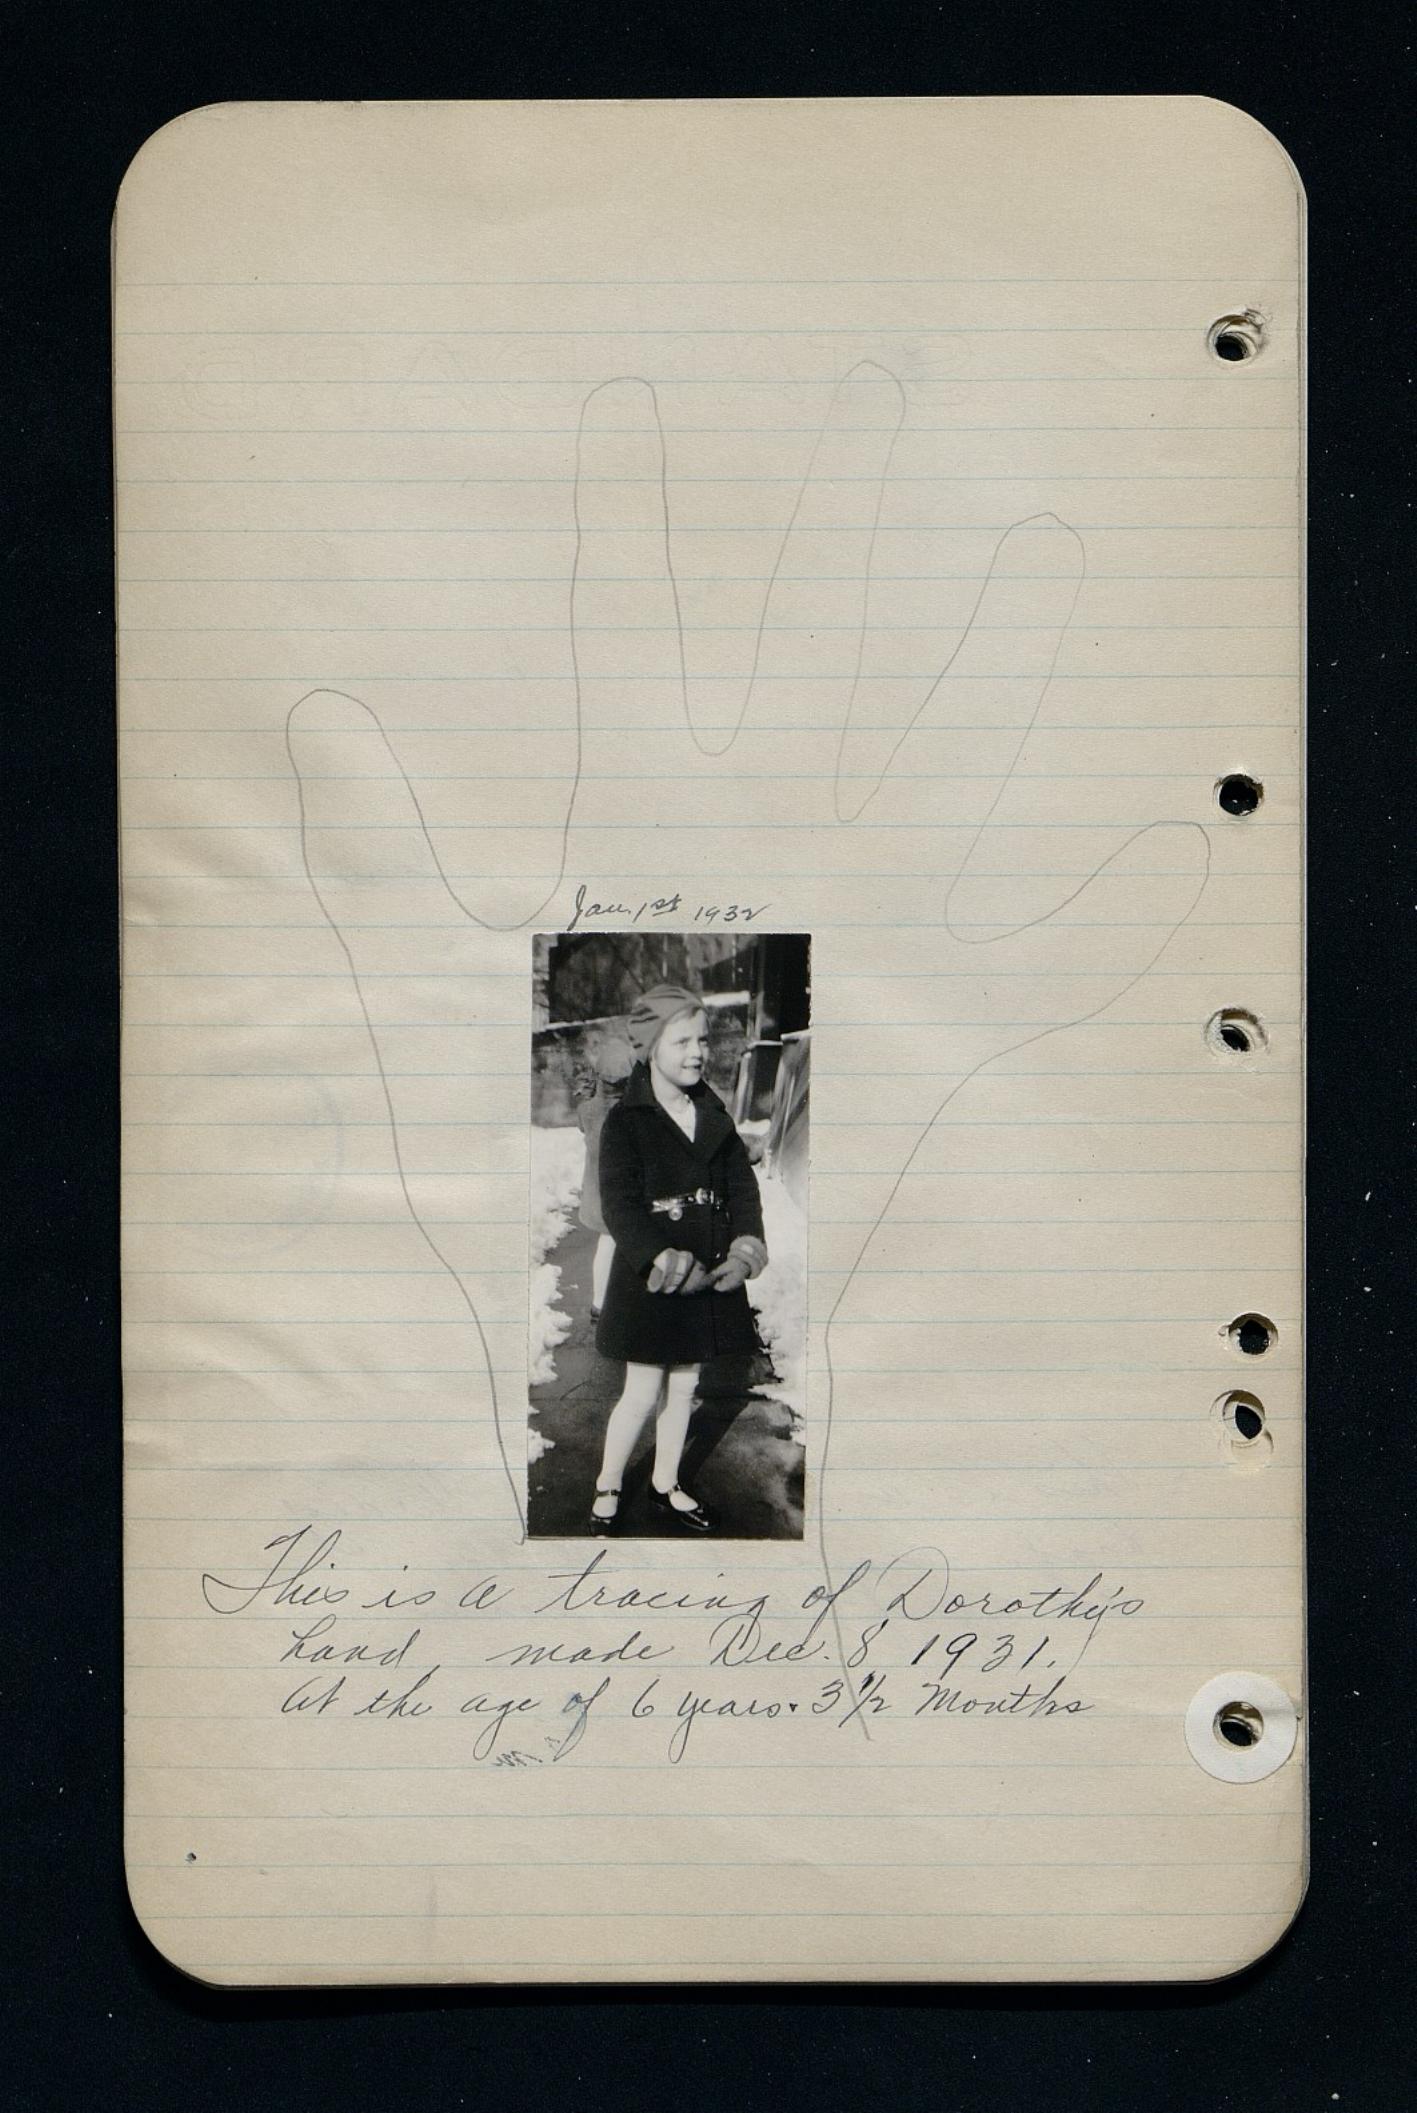 Jan. 1st 1932
This is a tracing of Dorothy's
hand, made Dec. 8, 1931.
At the age of 6 years. 3 1/2 Months